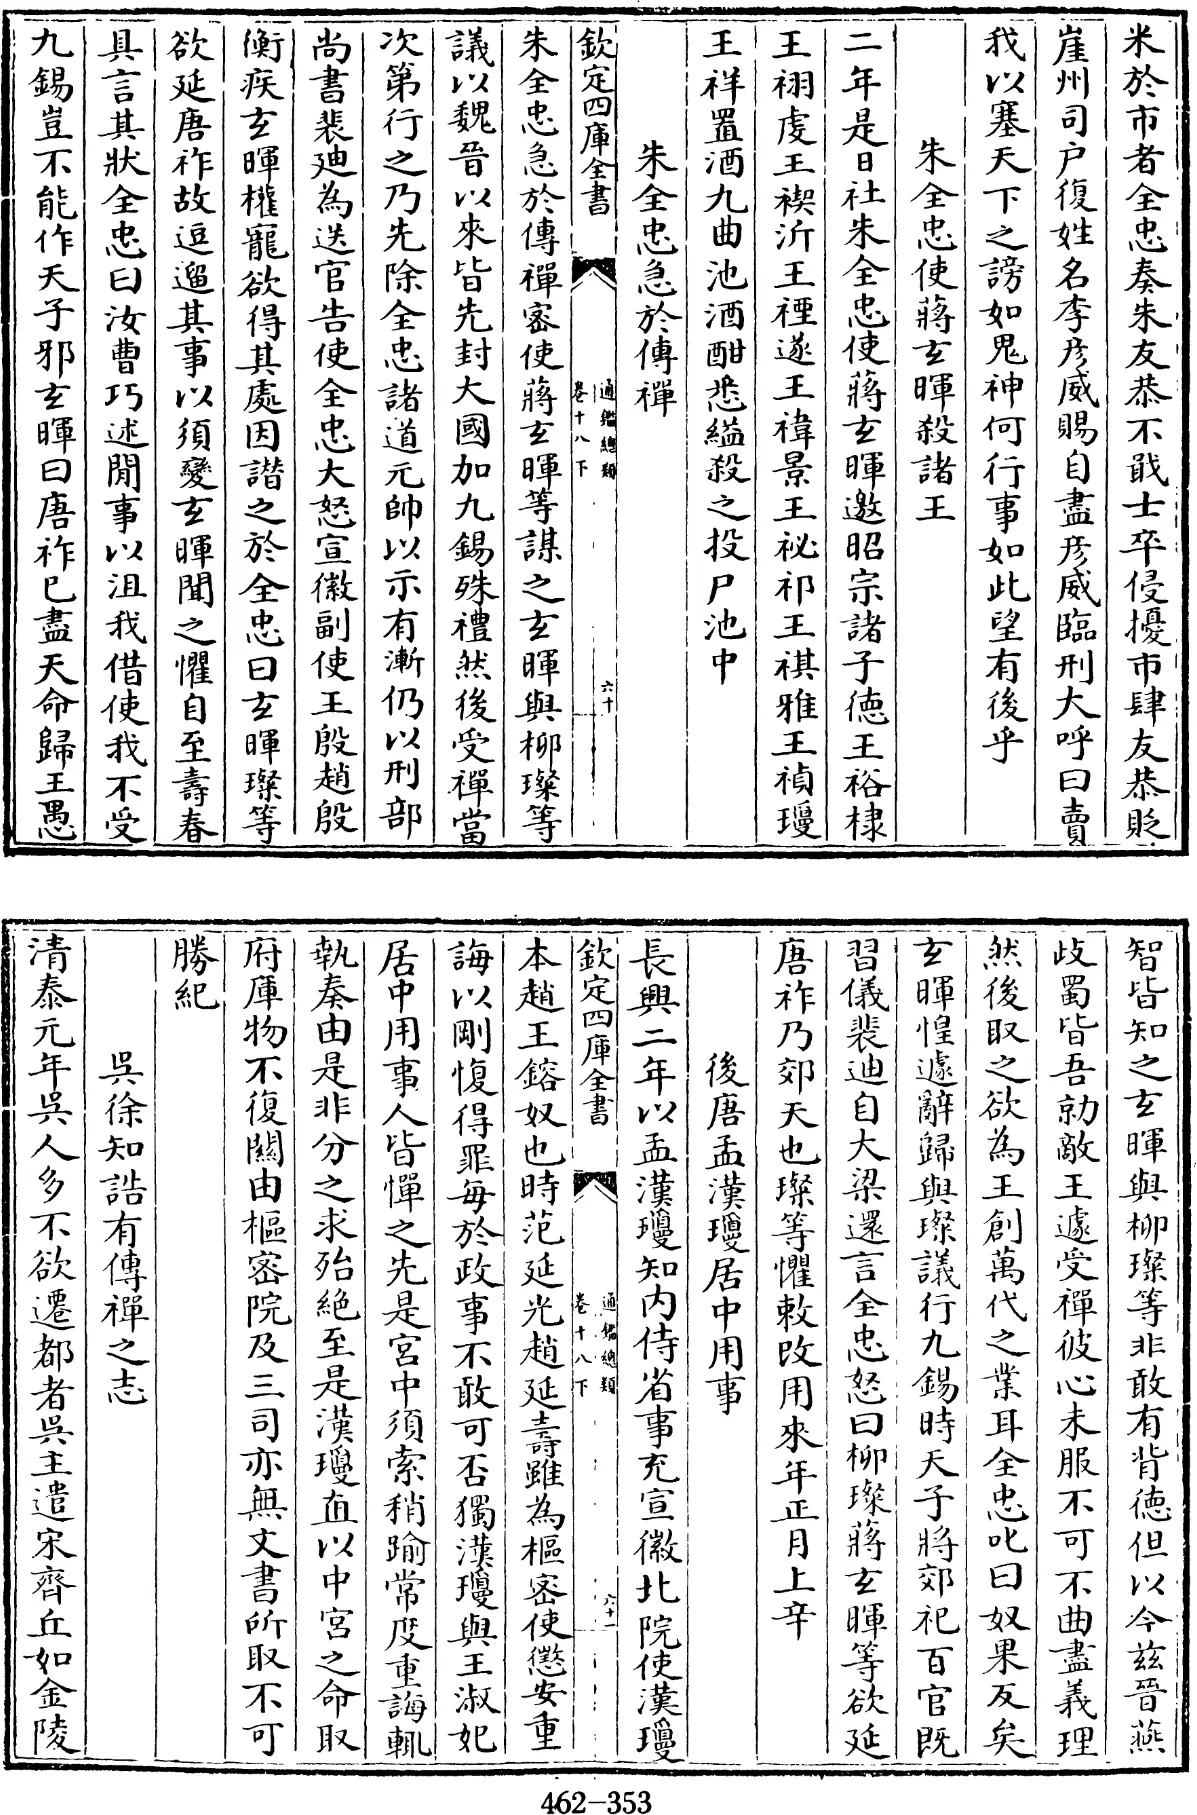 米於市者全忠奏朱友恭不戢士卒侵擾市肆友恭貶
崖州司户復姓名李彦威賜自盡彦威臨刑大呼曰賣
我以塞天下之謗如鬼神何行事如此望有後乎
朱全忠使蔣玄暉殺諸王
二年是日社朱全忠使蔣玄暉邀昭宗諸子德王裕棣
王祤虔王禊沂王禋遂王禕景王祕祁王祺雅王禎瓊
王祥置酒九曲池酒酣悉縊殺之投尸池中
朱全忠急於傳禪
欽定四庫全書
通鑑總類
卷十八下
六十
朱全忠急於傳禪密使蔣玄暉等謀之玄暉與柳璨等
議以魏晉以來皆先封大國加九錫殊禮然後受禪當
次第行之乃先除全忠諸道元帥以示有漸仍以刑部
尚書裴廸為送官告使全忠大怒宣徽副使王殷趙殷
衡疾玄暉權寵欲得其處因譖之於全忠曰玄暉璨等
欲延唐祚故逗遛其事以須變玄暉聞之懼自至壽春
具言其狀全忠曰汝曹巧述閒事以沮我借使我不受
九錫豈不能作天子邪玄暉曰唐祚已盡天命歸王愚
智皆知之玄暉與柳璨等非敢有背德但以今兹晉燕
歧蜀皆吾勍敵王遽受禪彼心未服不可不曲盡義理
然後取之欲為王創萬代之業耳全忠叱曰奴果反矣
玄暉惶遽辭歸與璨議行九錫時天子將郊祀百官既
習儀裴迪自大梁還言全忠怒曰柳璨蔣玄暉等欲延
唐祚乃郊天也璨等懼敕改用來年正月上辛
後唐孟漢瓊居中用事
長興二年以孟漢瓊知内侍省事充宣徽北院使漢瓊
欽定四庫全書
通鑑總類
卷十八下
六十一
本趙王鎔奴也時范延光趙延壽雖為樞密使懲安重
誨以剛愎得罪每於政事不敢可否獨漢瓊與王淑妃
居中用事人皆憚之先是宮中須索稍踰常度重誨輒
執奏由是非分之求殆絶至是漢瓊直以中宮之命取
府庫物不復關由樞密院及三司亦無文書所取不可
勝紀
吳徐知誥有傳禪之志
清泰元年吳人多不欲遷都者吳主遣宋齊丘如金陵
462-353